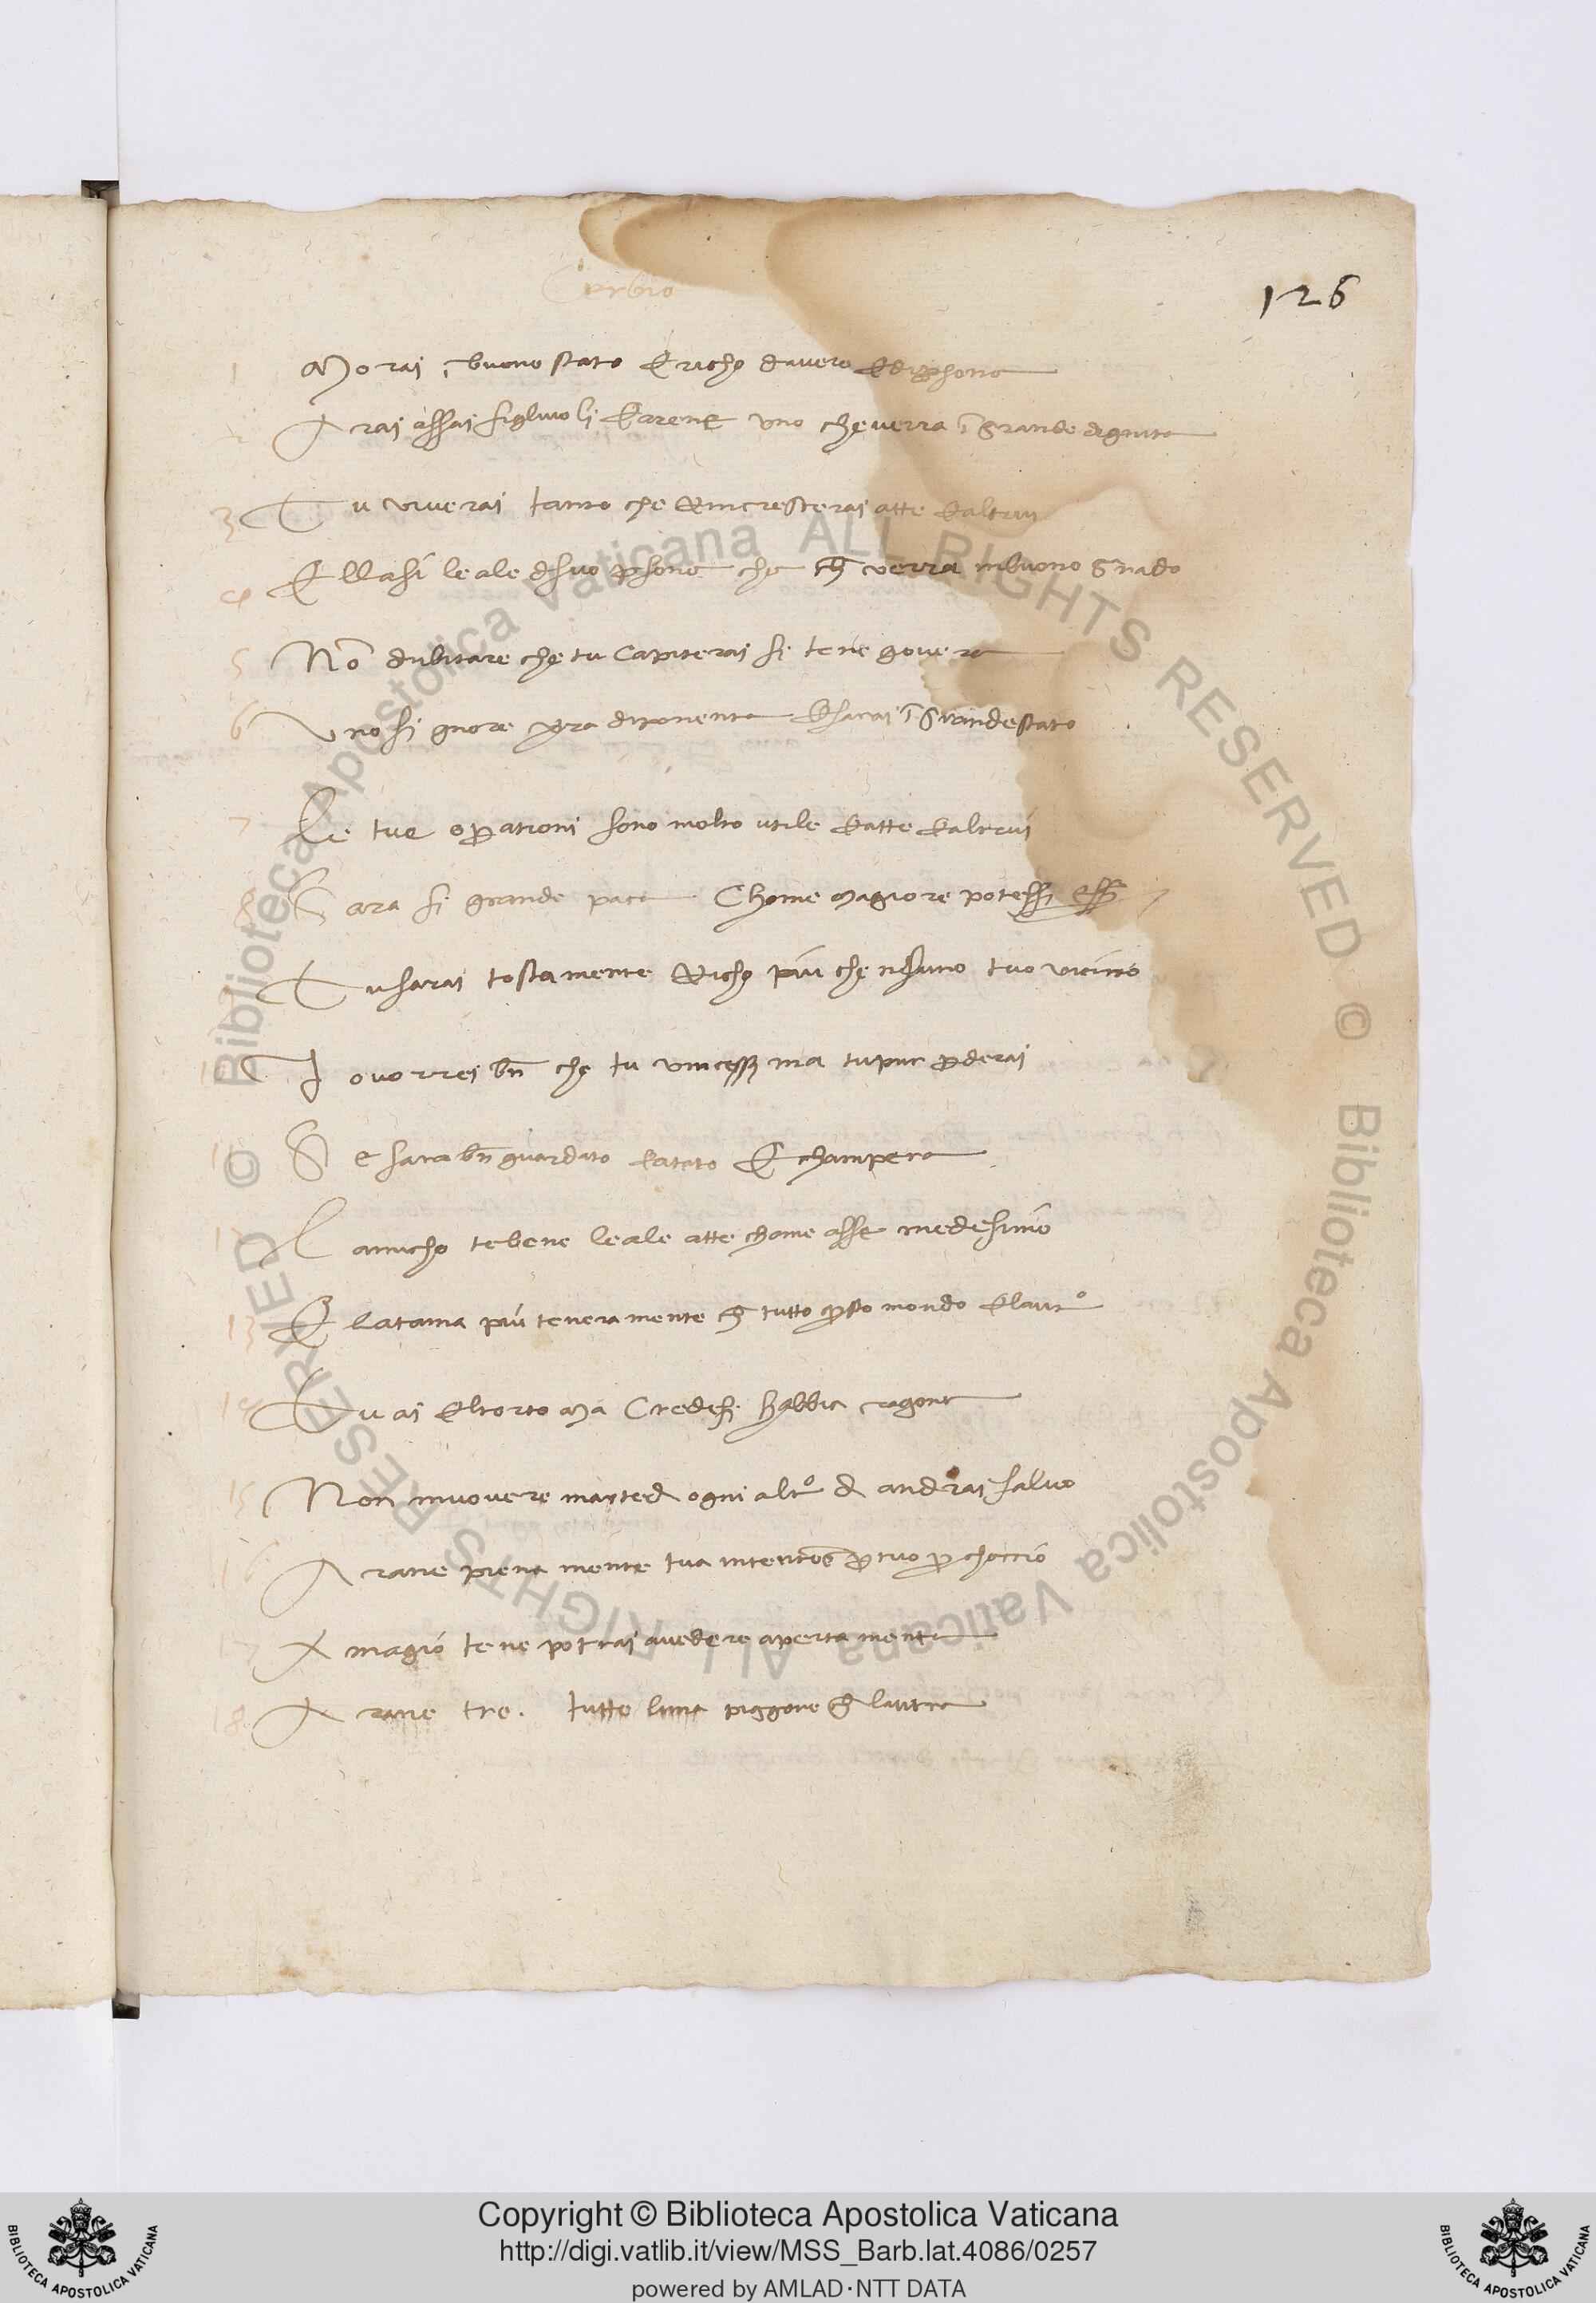 Cerbio
126
1 Morai ī buono stato E richo davere Edip̱sona
2 Arai assai figliuoli Earene uno che verra ī grande dignita
3 Tu viverai tanto che Rincrescerai atte Ealtrui
4 Ella si leale d suo p̱sona che verra inbuono grado
5 Nō dubitare che tu Capiterai si tene govera
6 Uno signore diponenta Esarai ī Grandestato
7 Le tue op̱ationi sono molto utile Eatte Ealtrui
8 Sara si grande pace Chome magiore potessi ess
9 Tu sarai tostamente Richo piu che nesuno tuo vicino
10 Io vorrei bn̄ che tu vincessi ma tu pur p̱derai
11 Se sara bn̄ guardato Eatato E champera
12 Lamicho tebene leale atte chome asse medesimo
13 E latama piu teneramente ch tutto q̱sto mondo Elaltº
14 Tu ai Eltorto Ma Credesi habbia ragone
15 Non muovere marted ogni altº d andrai salvo
16 Arane piena mente tua intentōe p̱ tuo p̱chaccio
17 A magio tene potrai avedere apertamente
18 Arane tre. tutte luna piggore ch laltra
Copyright © Biblioteca Apostolica Vaticana
http://digi.vatlib.it/view/MSS_Barb.lat.4086/0257
powered by AMLAD·NTT DATA
BIBLIOTECA APOSTOLICA VATICANA
BIBLIOTECA APOSTOLICA VATICANA
© Biblioteca Apostolica Vaticana ALL RIGHTS RESERVED
© Biblioteca Apostolica Vaticana ALL RIGHTS RESERVED